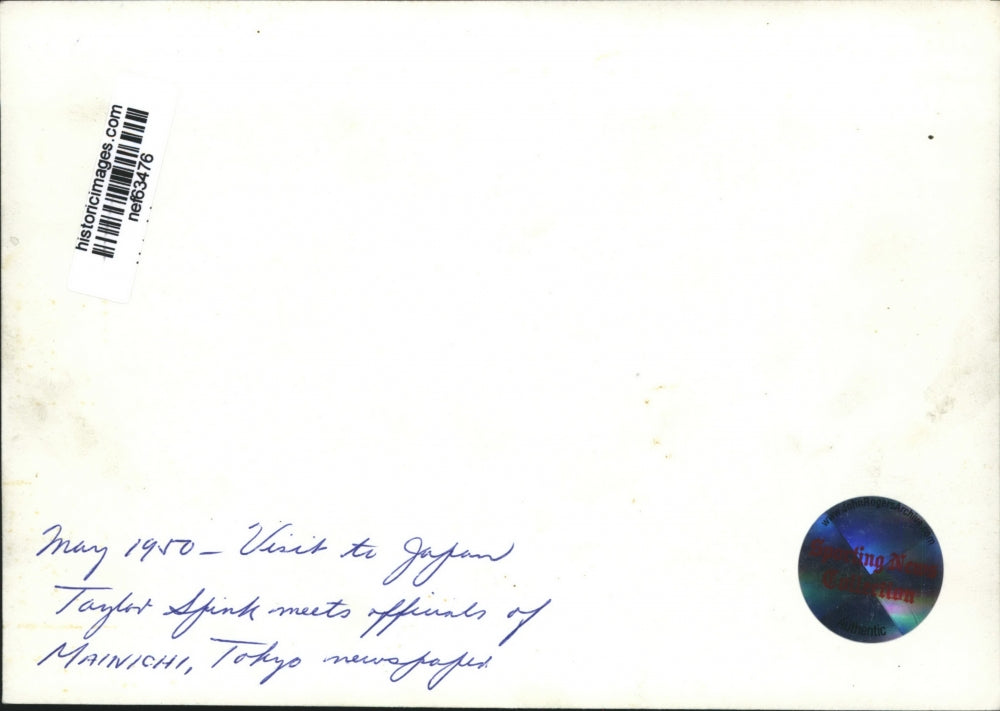 historicimages.com
nef63476
May 1950 – Visit to Japan
Taylor Spink meets officials of
MAINICHI, Tokyo newspaper.
www.JohnRogersArchive.com
Sporting News
Collection
Authentic